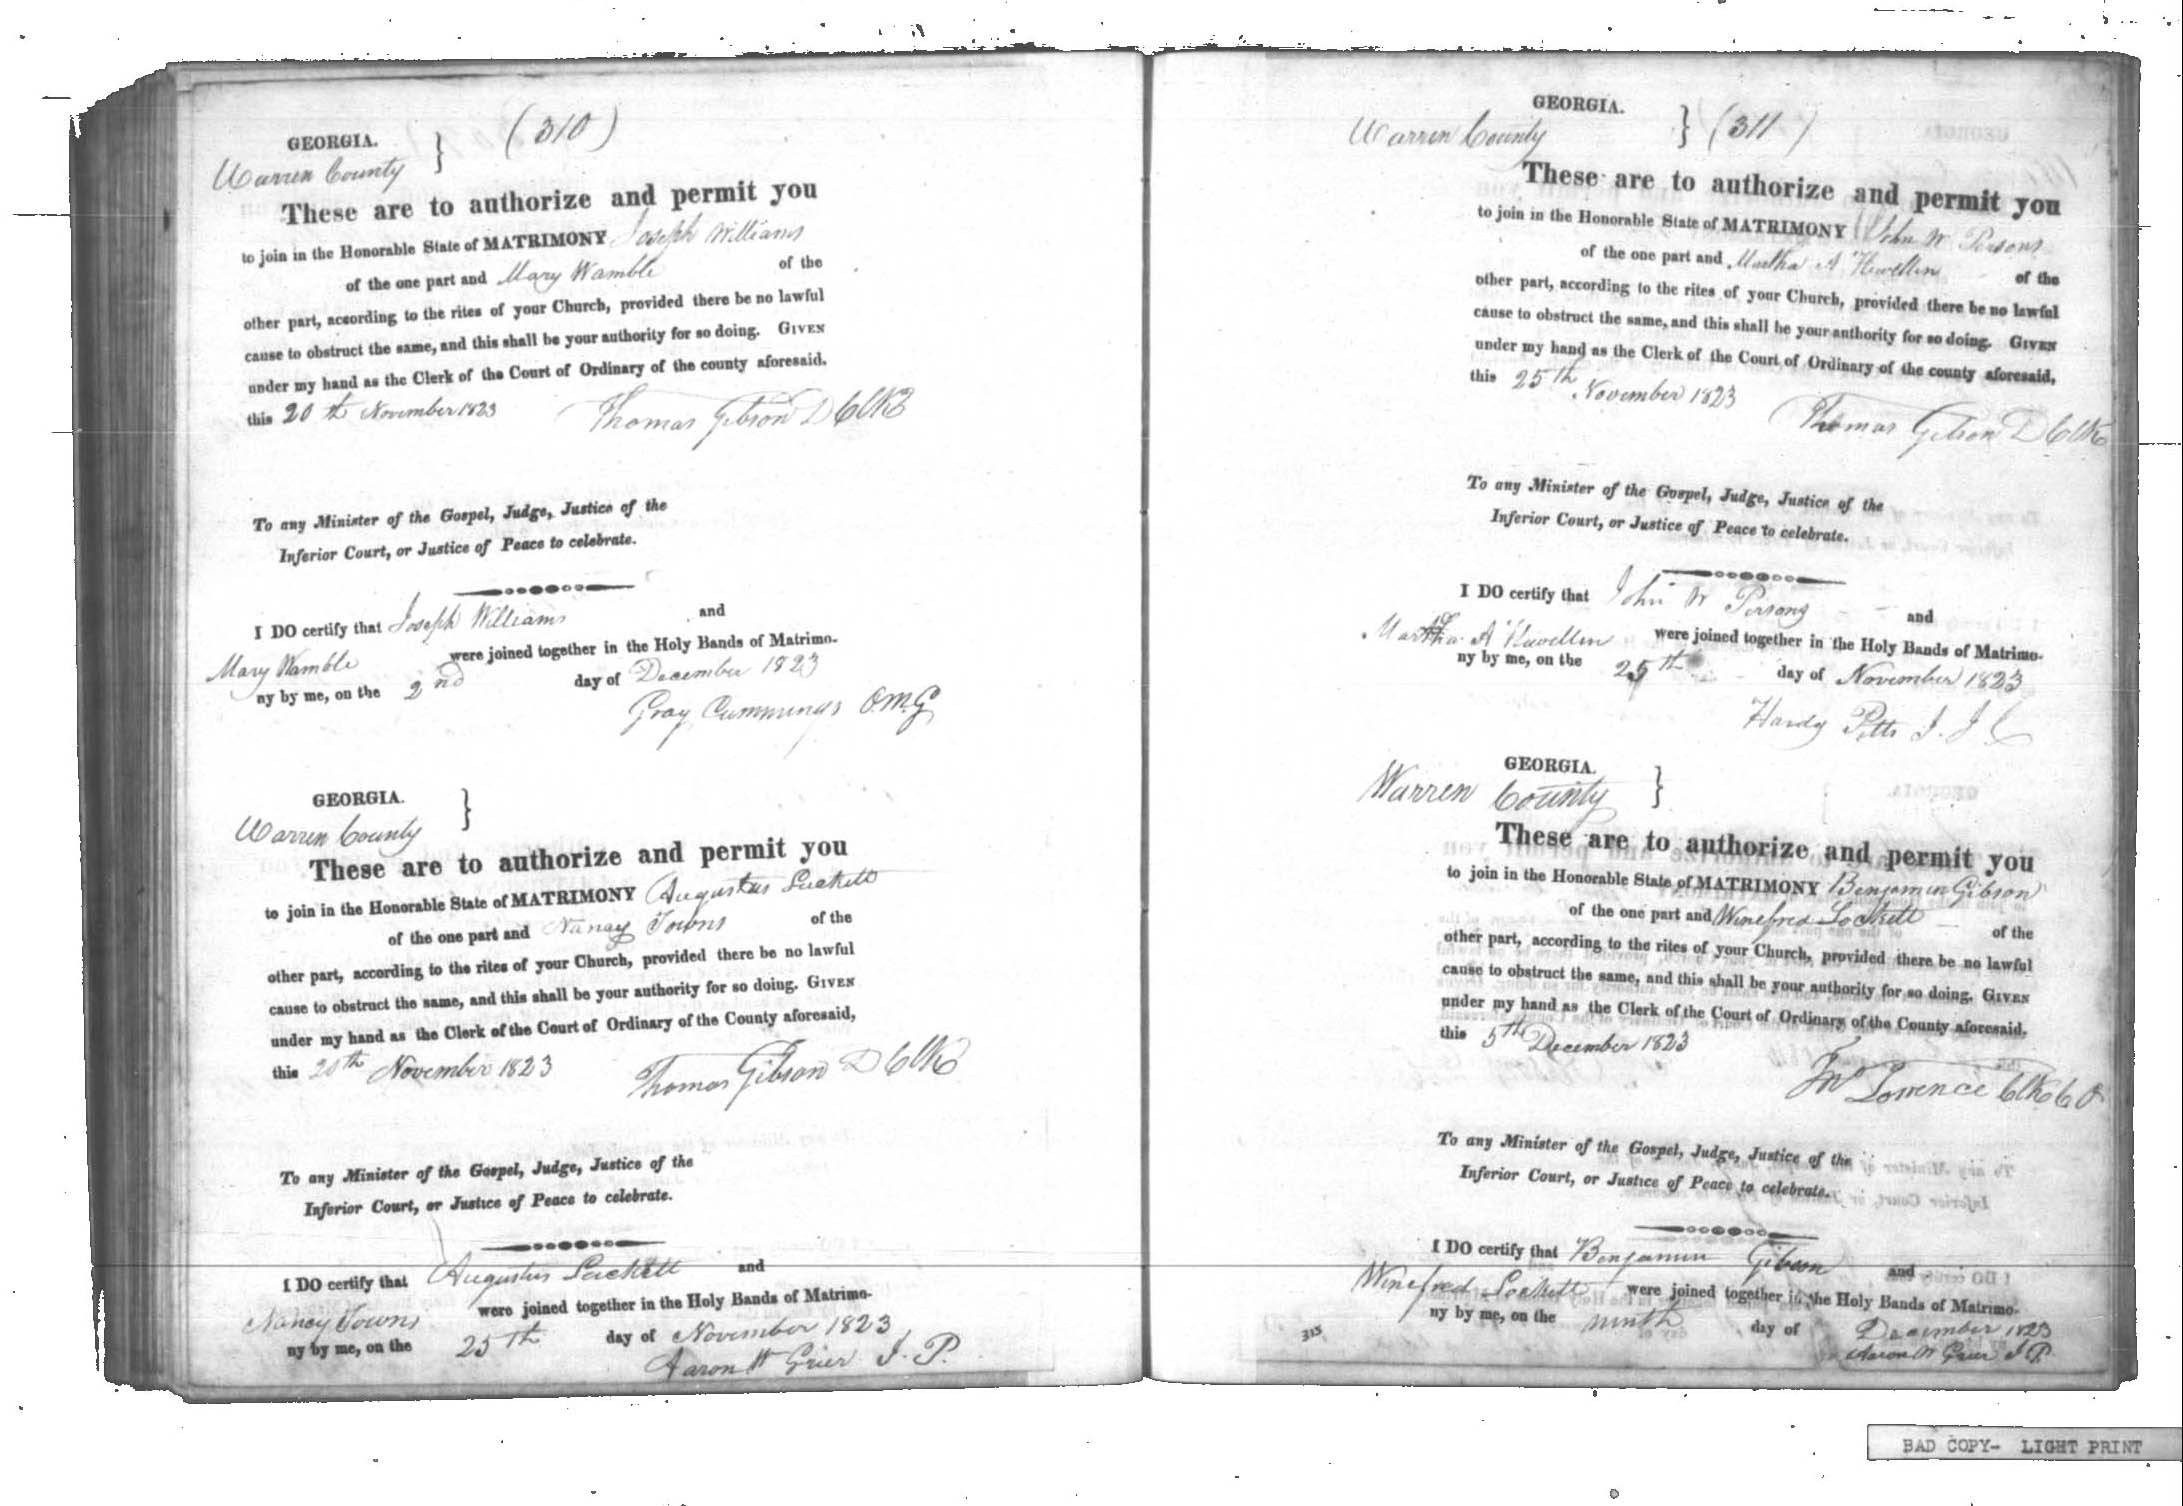 (310)
GEORGIA. }
Warren County
These are to authorize and permit you
to join in the Honorable State of MATRIMONY Joseph Williams
of the one part and Mary Wamble of the
other part, according to the rites of your Church, provided there be no lawful
cause to obstruct the same, and this shall be your authority for so doing. GIVEN
under my hand as the Clerk of the Court of Ordinary of the county aforesaid,
this 20th November 1823
Thomas Gibson D ClK
To any Minister of the Gospel, Judge, Justice of the
Inferior Court, or Justice of Peace to celebrate.
I DO certify that Joseph Williams and
Mary Wamble were joined together in the Holy Bands of Matrimo-
ny by me, on the 2nd day of December 1823
Gray Cummings O.M.G
GEORGIA. }
Warren County
These are to authorize and permit you
to join in the Honorable State of MATRIMONY Augustus Luckett
of the one part and Nancy Towns of the
other part, according to the rites of your Church, provided there be no lawful
cause to obstruct the same, and this shall be your authority for so doing. GIVEN
under my hand as the Clerk of the Court of Ordinary of the County aforesaid,
this 20th November 1823
Thomas Gibson D ClK
To any Minister of the Gospel, Judge, Justice of the
Inferior Court, or Justice of Peace to celebrate.
I DO certify that Augustus Luckett and
Nancy Towns were joined together in the Holy Bands of Matrimo-
ny by me, on the 25th day of November 1823
Aaron W Grier J. P.
GEORGIA.
Warren County } (311)
These are to authorize and permit you
to join in the Honorable State of MATRIMONY John W Persons
of the one part and Martha A Hewellin of the
other part, according to the rites of your Church, provided there be no lawful
cause to obstruct the same, and this shall be your authority for so doing. GIVEN
under my hand as the Clerk of the Court of Ordinary of the county aforesaid,
this 25th November 1823
Thomas Gibson D ClK
To any Minister of the Gospel, Judge, Justice of the
Inferior Court, or Justice of Peace to celebrate.
I DO certify that John W Persons and
Martha A Hewellin were joined together in the Holy Bands of Matrimo-
ny by me, on the 25th day of November 1823
Hardy Pitts J. J C
GEORGIA. }
Warren County
These are to authorize and permit you
to join in the Honorable State of MATRIMONY Benjamin Gibson
of the one part and Winefred Lockett of the
other part, according to the rites of your Church, provided there be no lawful
cause to obstruct the same, and this shall be your authority for so doing. GIVEN
under my hand as the Clerk of the Court of Ordinary of the County aforesaid,
this 5th December 1823
Jno Torrence ClK C O
To any Minister of the Gospel, Judge, Justice of the
Inferior Court, or Justice of Peace to celebrate.
I DO certify that Benjamin Gibson and
Winefred Lockett were joined together in the Holy Bands of Matrimo-
ny by me, on the ninth day of December 1823
Aaron W Grier J P.
313
BAD COPY- LIGHT PRINT